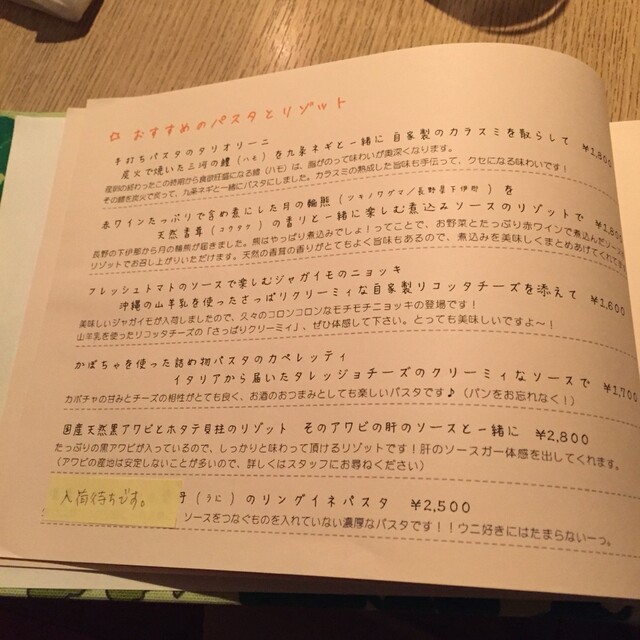 ✿ おすすめのパスタとリゾット
手打ちパスタのタリオリーニ
炭火で焼いた三河の鱧(ハモ)を九条ネギと一緒に 自家製のカラスミを散らして ¥1,800
産卵の終わったこの時期から食欲旺盛になる鱧(ハモ)は、脂がのって味わいが奥深くなります。
その鱧を炭火で炙って、九条ネギと一緒にパスタにしました。カラスミの熟成した旨味も手伝って、クセになる味わいです!
赤ワインたっぷりで含め煮にした月の輪熊(ツキノワグマ/長野県下伊那)を
天然香茸(コウタケ)の香りと一緒に楽しむ煮込みソースのリゾットで ¥1,800
長野の下伊那から月の輪熊が届きました。熊はやっぱり煮込みでしょ!ってことで、お野菜とたっぷり赤ワインで煮込んだソース
リゾットでお召し上がりいただけます。天然の香茸の香りがとてもよく旨味もあるので、煮込みを美味しくまとめあげてくれ
フレッシュトマトのソースで楽しむジャガイモのニョッキ
沖縄の山羊乳を使ったさっぱりクリーミィな自家製リコッタチーズを添えて ¥1,600
美味しいジャガイモが入荷しましたので、久々のコロンコロンなモチモチニョッキの登場です!
山羊乳を使ったリコッタチーズの「さっぱりクリーミィ」、ぜひ体感して下さい。とっても美味しいですよ〜!
かぼちゃを使った詰め物パスタのカペレッティ
イタリアから届いたタレッジョチーズのクリーミィなソースで ¥1,700
カボチャの甘みとチーズの相性がとても良く、お酒のおつまみとしても楽しいパスタです♪(パンをお忘れなく!)
国産天然黒アワビとホタテ貝柱のリゾット そのアワビの肝のソースと一緒に ¥2,800
たっぷりの黒アワビが入っているので、しっかりと味わって頂けるリゾットです!肝のソースが一体感を出してくれます。
(アワビの産地は安定しないことが多いので、詳しくはスタッフにお尋ねください)
入荷待ちです。
(うに)のリングイネパスタ ¥2,500
ソースをつなぐものを入れていない濃厚なパスタです!!ウニ好きにはたまらないーっ。